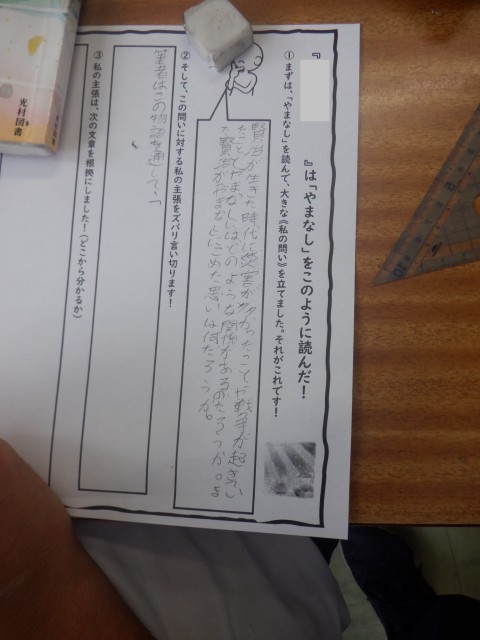 『　　　　』は「やまなし」をこのように読んだ！
① まずは、「やまなし」を読んで、大きな《私の問い》を立てました。それがこれです！
賢治が生きた時代に災害が多かったことや戦争が起きてい
たことでやまなしはどのような関係があるのだろうか。ま
た賢治がやまなしにこめた思いは何だろうか。
② そして、この問いに対する私の主張をズバリ言い切ります！
筆者はこの物語を通して、「
③ 私の主張は、次の文章を根拠にしました！（どこから分かるか）
光村図書